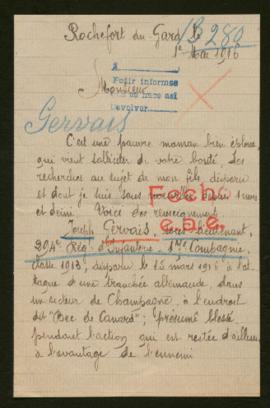 Rochefort du Gard le
13280
1er Mai 1916
A
Pedir informes
Devolver
Monsieur
Gervais
C'est une pauvre maman bien éplorée
qui vient solliciter de votre bonté des
recherches au sujet de mon fils disparu
et dont je suis sans nouvelles depuis 1 mois
et demi. Voici des renseignements
Fecho
Joseph Gervais, sous-lieutenant,
294e Rég. d'Infanterie, 1ère Compagnie,
classe 1913, disparu le 15 mars 1916 à l'at
taque d'une tranchée allemande dans
un secteur de Champagne, à l'endroit
dit "Bec de Canard"; présumé blessé
pendant l'action qui est restée d'ailleurs
à l'avantage de l'ennemi